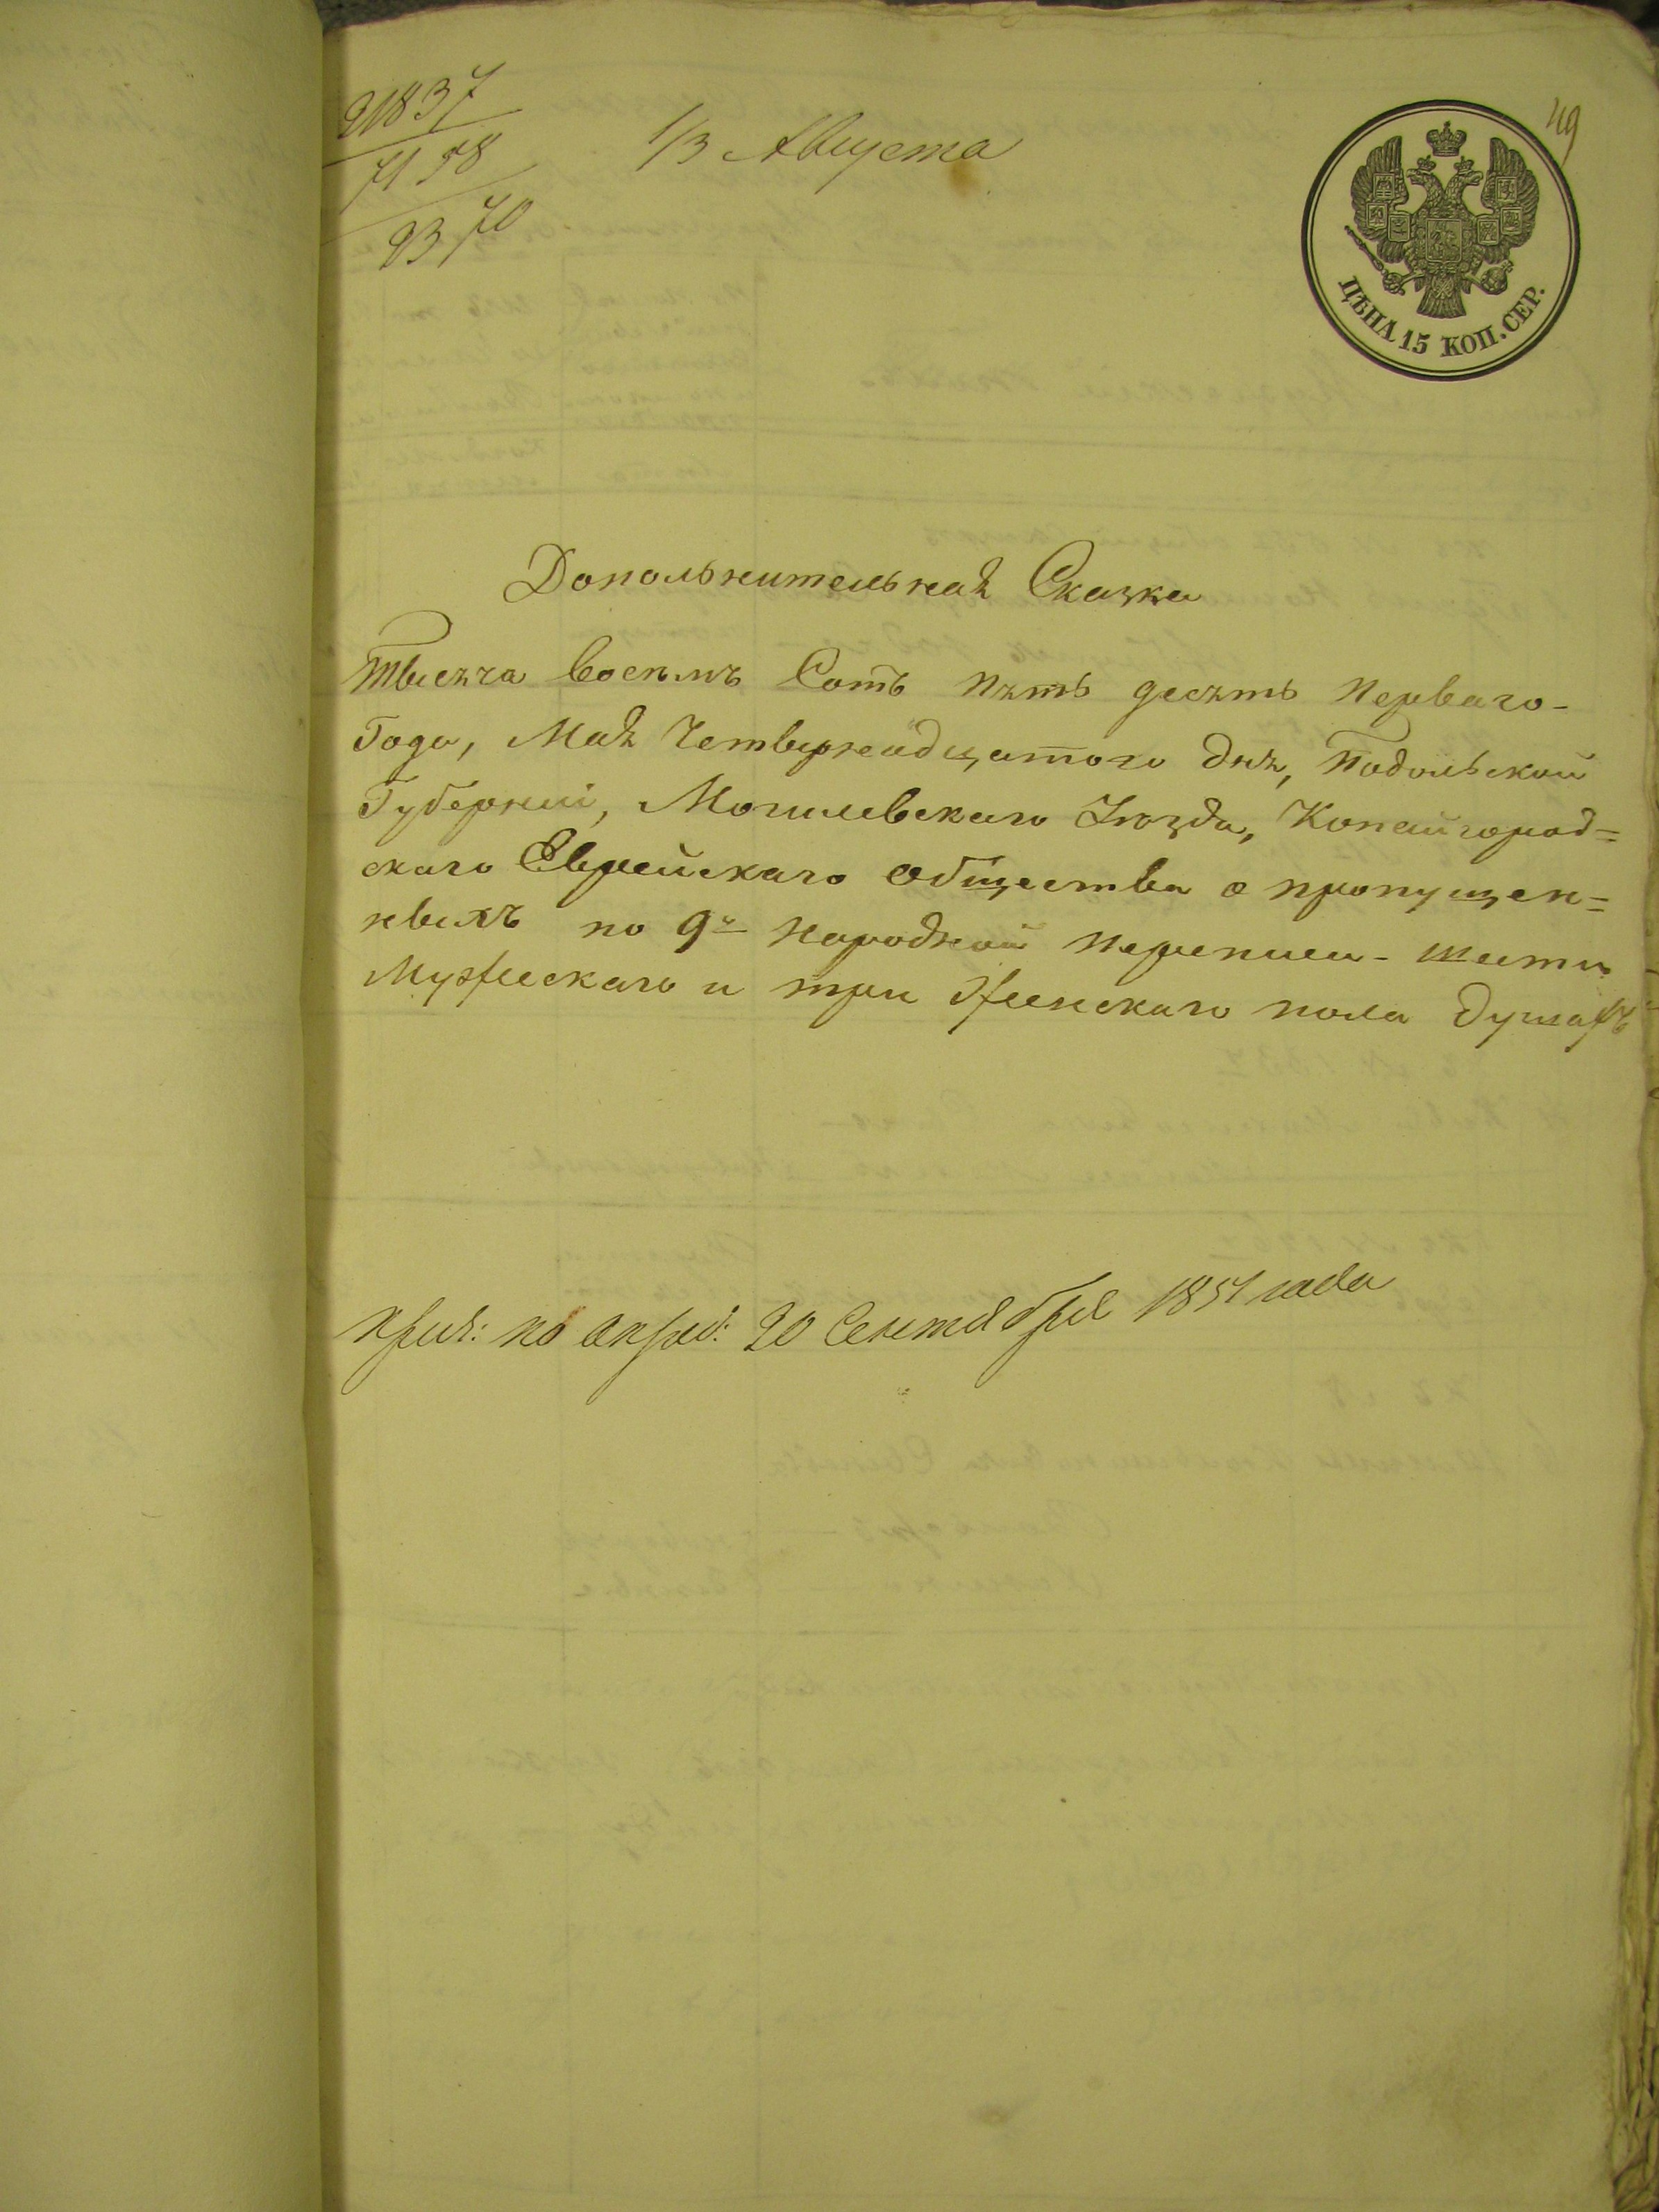 21837
7158
9370
1/3 Августа
49
ЦѢНА 15 КОП. СЕР.
Дополънителъная Сказка
Тысяча восемъ Сотъ пятъ десятъ перваго-
Года, Мая Четвернадцатого дня, Подольской
Губерниі, Могилевскаго Уезда, Копайгород=
скаго Еврейскаго общества о пропущен=
ныхъ по 9й народной переписи- шести
Мужескаго и три Женскаго пола душахъ
20 Сентября 1851 года